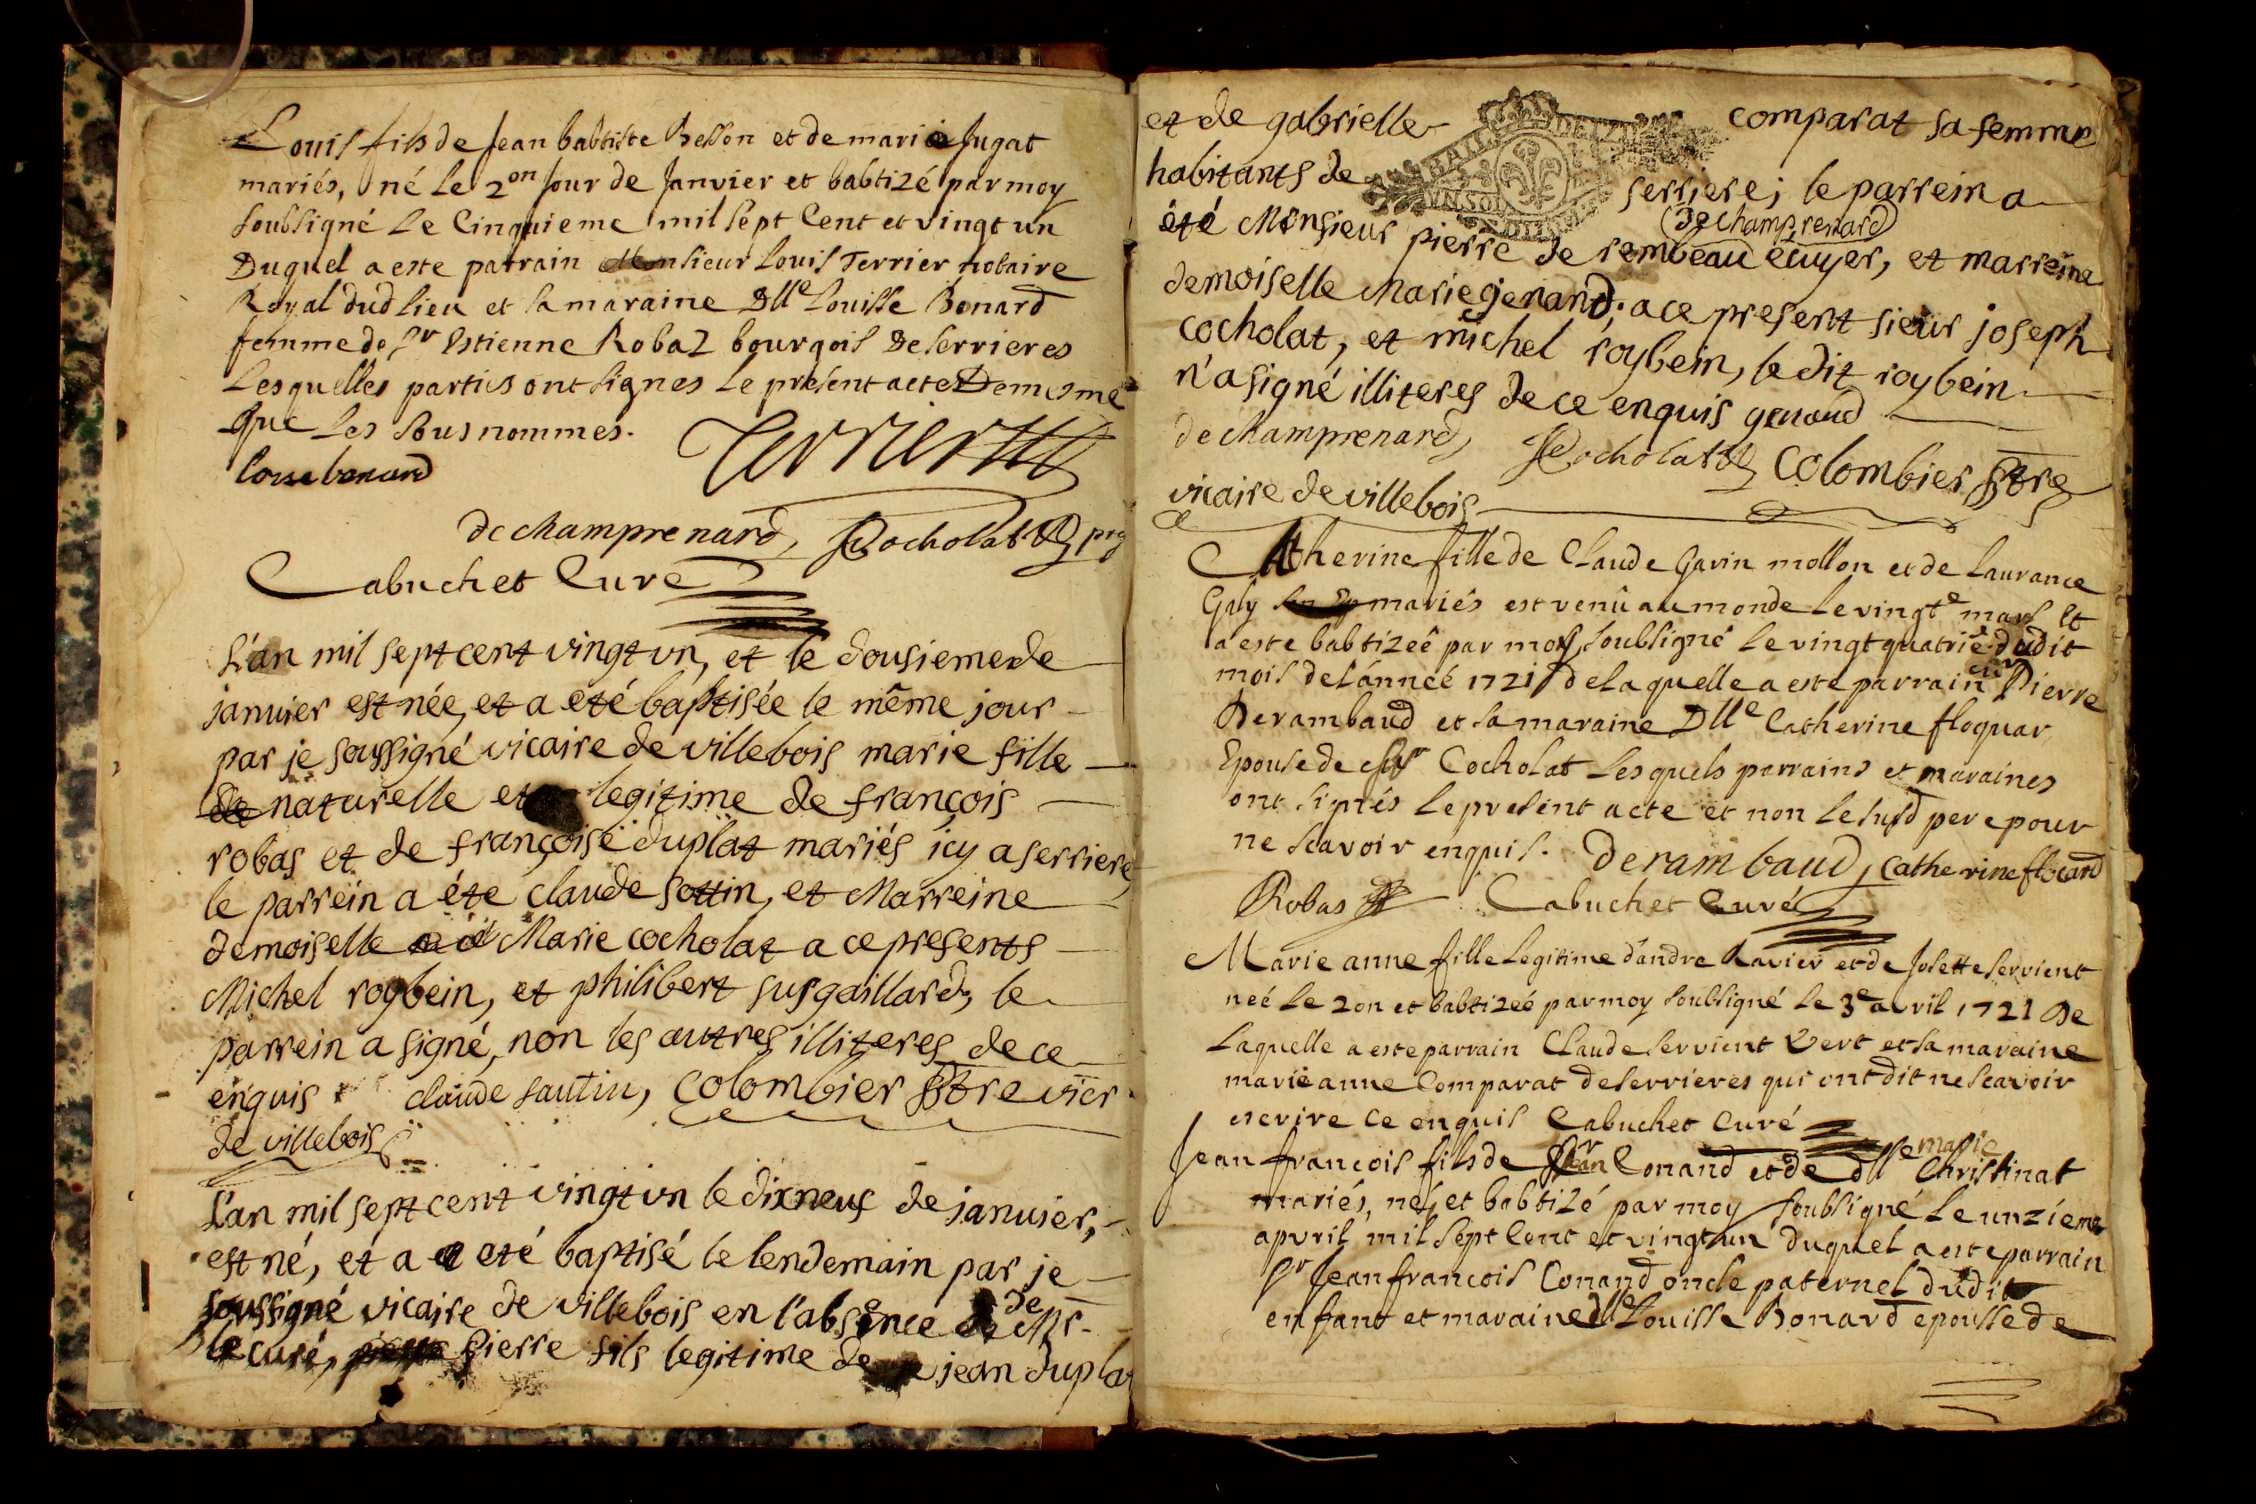 Louis fils de Jean babtiste Besson et de marie Jugat
mariés, né le 2on Jour de Janvier et babtizé par moy
soubsigné le Cinquieme mil sept Cent et vingt un
Duquel a este parrain Monsieur Louis Terrier notaire
Royal dud lieu et sa maraine Dlle Louisse Bonard
femme de Sr Estienne Robaz bourgois De serrieres
Lesquelles parties ont signes le present acte De mesme
que les sous nommes.
Terrier
de champrenard, Cocholat
Cabuchet Curé
L'an mil sept cent vingt vn, et le dousieme de
januier est née, et a eté baptisée le même jour
par je soussigné vicaire de villebois marie fille
de naturelle et legitime de françois
robas et de françoise duplat mariés icy a serriere,
le parrein a éte claude sottin, et Marreine
demoiselle Marie cocholat a ce presents
Michel roybein, et philibert susgaillard, le
parrein a signé, non les autres illiteres de ce
enquis claude sautin, Colombier ptre vicr
de villebois
L'an mil sept cent vingt vn le dixneuf de januier,
est né, et a eté baptisé le lendemain par je
soussigné vicaire de villebois en l'absence de Mr
le curé, pierre Pierre fils legitime de jean dupla
et de gabrielle comparat sa femme
habitants de serriere; le parrein a
de champrenard
été Monsieur pierre de rembeau écuyer, et marreine
demoiselle Marie genand; a ce present sieur joseph
cocholat, et michel roybein, le dit roybein
n'a signé illiteres de ce enquis genand
de champrenard, Cocholat Colombier ptre
vicaire de villebois
Catherine fille de Claude Gavin mollon et de Laurance
Guy mariés est venû au monde le vingte mars et
a este babtizeé par moy soubsigné le vingt quatrie dudit
mois de l'anneé 1721 de laquelle a este parrain Pierre
Derambaud et sa maraine Dlle Catherine floquar
Epouse de Sr Cocholat lesquels parrains et maraines
ont signés le present acte et non le susd pere pour
ne scavoir enquis. Derambaud, Catherine flocard
Robas Cabuchet Curé
Marie anne fille legitime d'andre Ravier et de Josette servient
neé le 2on et babtizeé par moy soubsigné le 3e avril 1721 De
laquelle a este parrain Claude servient Vert et sa maraine
marie anne Comparat de serrieres qui ont dit ne scavoir
escrire ce enquis Cabuchet Curé
marie
Jean francois fils de Conand et de dlle Christinat
mariés, né, et babtizé par moy soubsigné le unziéme
apvril mil sept Cent et vingt un duquel a este parrain
Sr Jean francois Conand oncle paternel dudit
enfant et maraine dlle Louisse Bonard epousse de